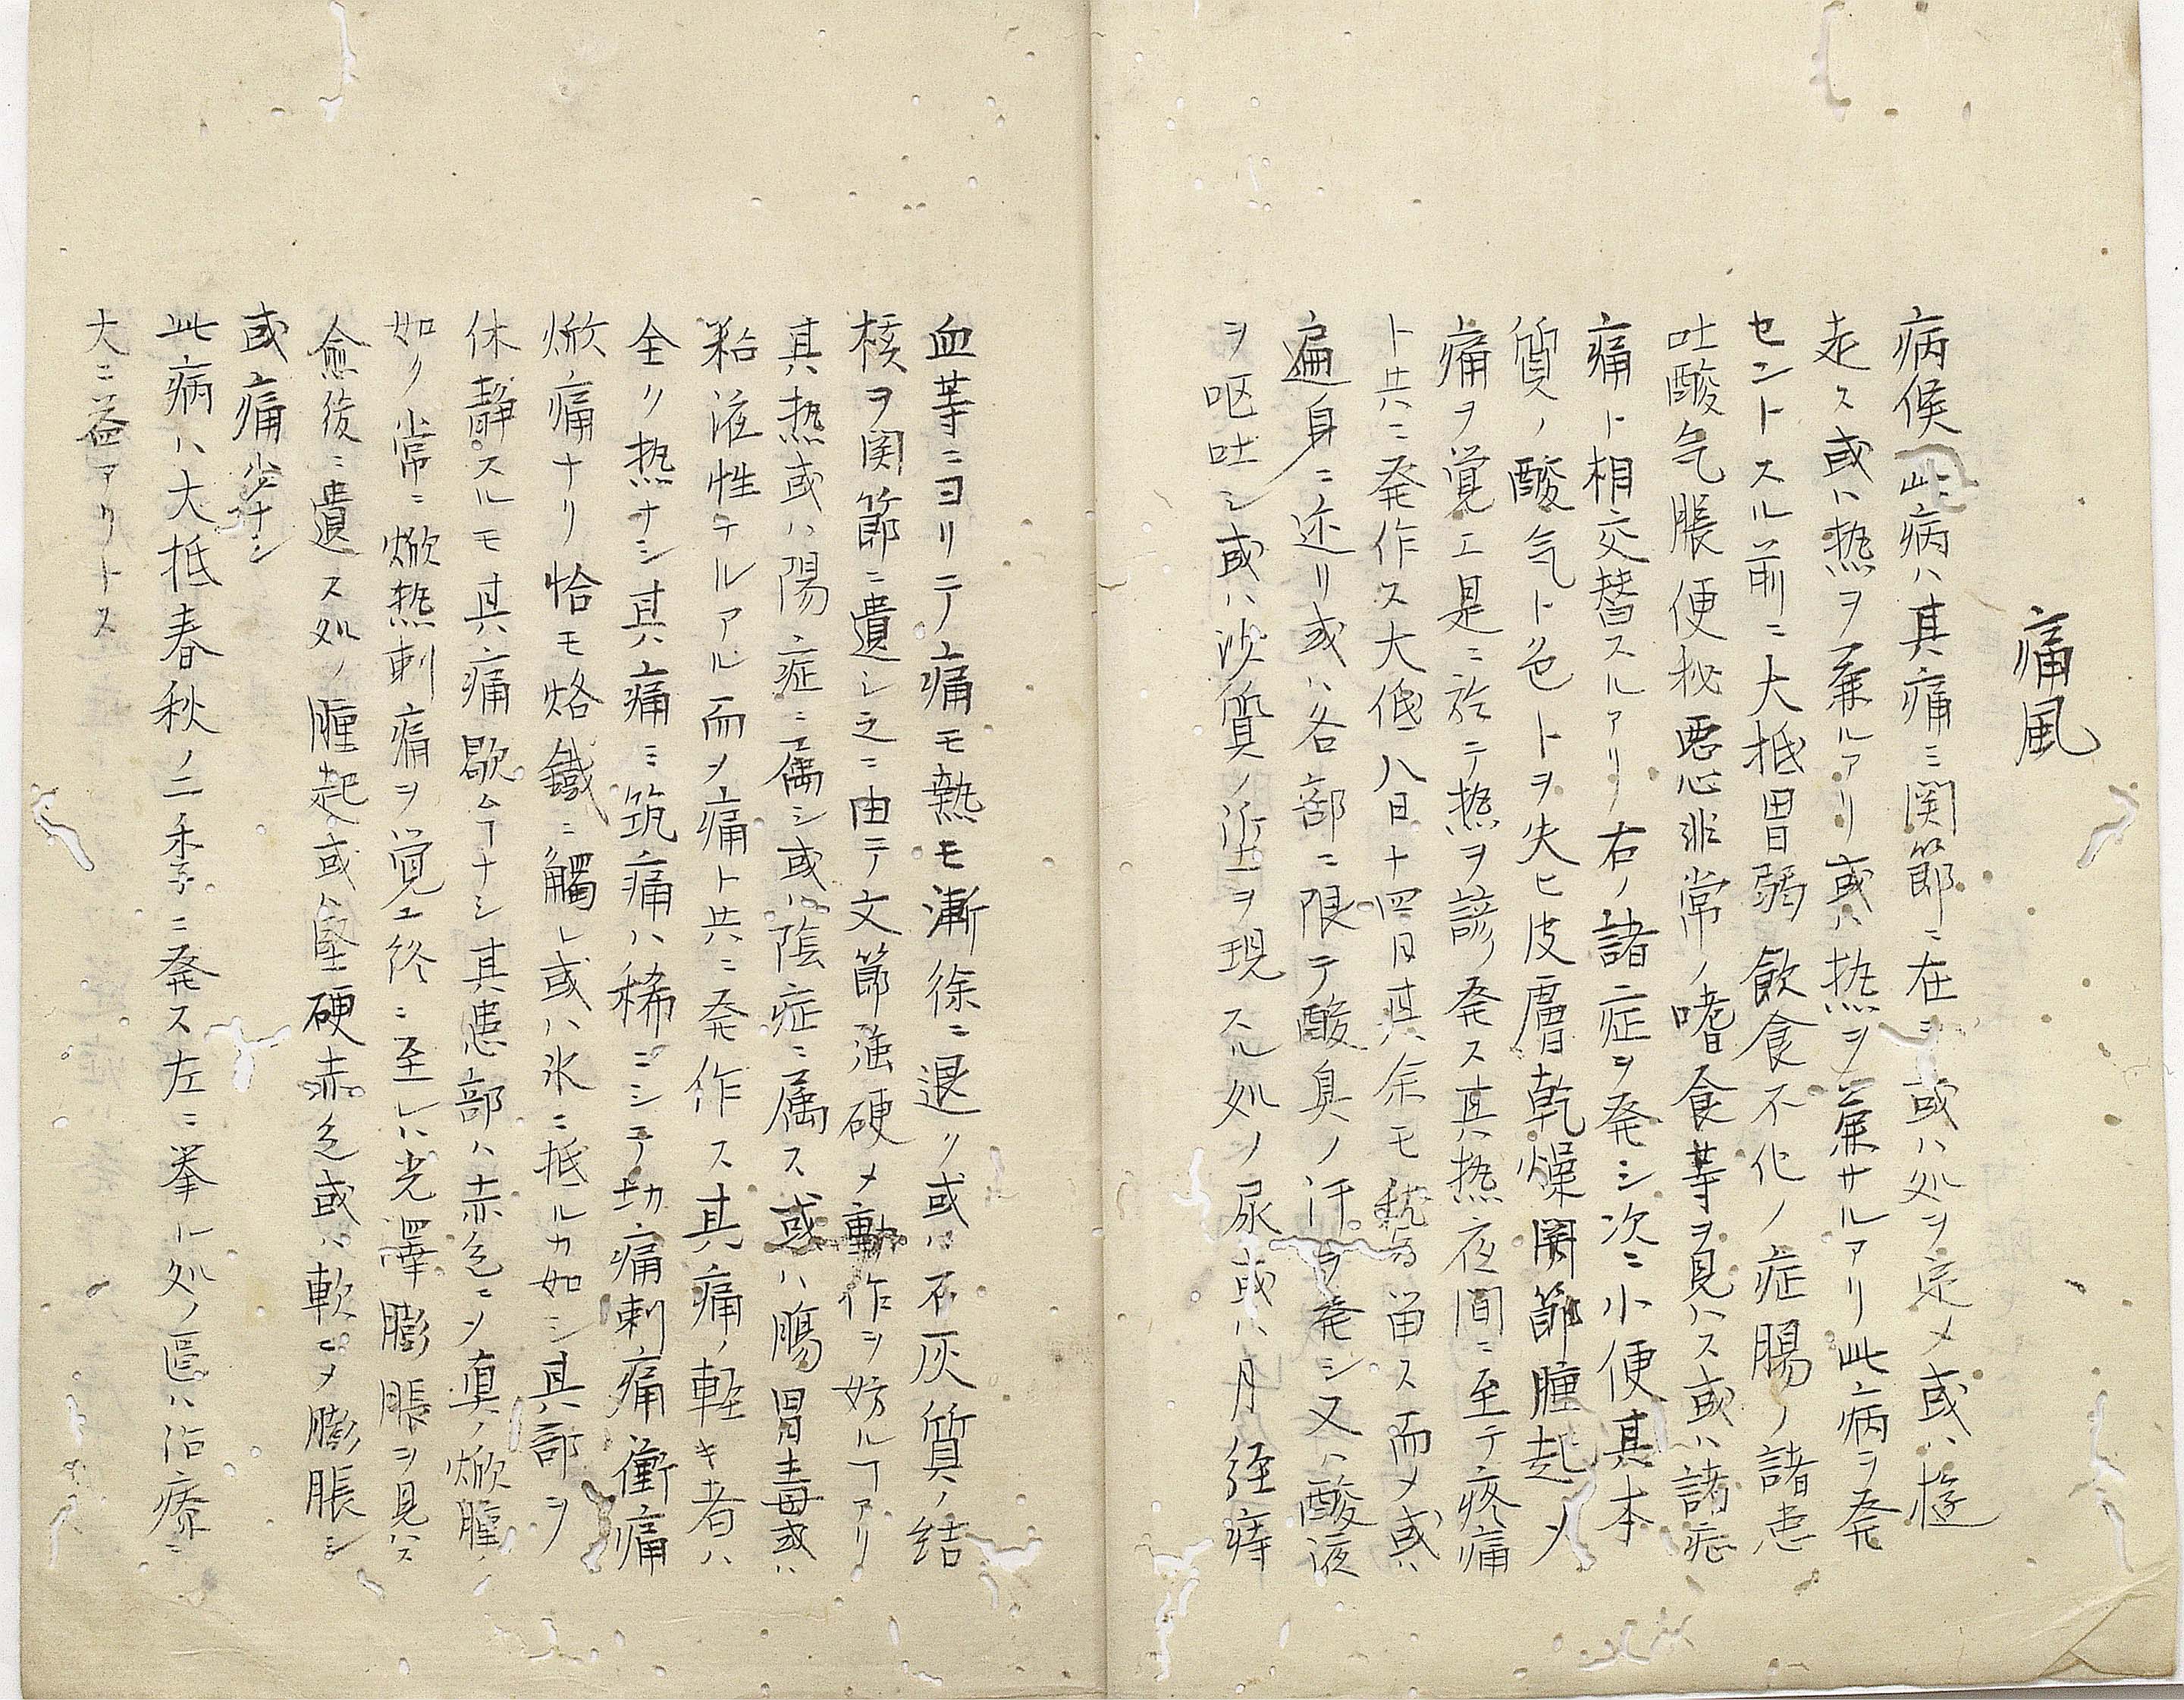 痛風
病候 此病ハ其痛ミ関節ニ在ヲ或ハ処ヲ定メ或ハ遊
走ス或ハ热ヲ兼ルアリ或ハ热ヲ兼サルアリ此病ヲ発
セントスル前ニ大抵胃弱飲食不化ノ症腸ノ諸患
吐酸气脹便秘悪心非常ノ嗜食等ヲ見ハス或ハ諸症
痛ト相交替スルアリ右ノ諸症ヲ発シ次ニ小便其本
質ノ酸气ト色トヲ失ヒ皮膚乾燥関節腫起メ
痛ヲ覚エ是ニ於テ热ヲ発ス其热夜間ニ至テ疼痛
ト共ニ発作ス大低八日十四日其余モ稽留ス而メ或ハ
遍身ニ迩リ或ハ各部ニ限テ酸臭ノ汗ヲ発シ又ハ酸液
ヲ呕吐シ或ハ沙質ノ涬ヲ現スル処ノ尿或ハ月経痔
血等ニヨリテ痛モ熱モ漸徐ニ退ク或ハ石灰質ノ结
核ヲ関節ニ遺シ之ニ由テ文節強硬メ動作ヲ妨ルヿアリ
其热或ハ陽症ニ属シ或ハ陰症ニ属ス或ハ腸胃毒或ハ
粘液性テルアル而ヲ痛ト共ニ発作ス其痛ノ軽キ者ハ
全ク热ナシ其痛ミ筑痛ハ稀ニシテ切痛刺痛衝痛
焮痛ナリ恰モ烙鐵ニ觸レ或ハ氷ニ抵ルカ如シ其部ヲ
休静スルモ其痛歇ムヿナシ其患部ハ赤色ニメ真ノ焮腫ノ
如ク常ニ焮热刺痛ヲ覚エ終ニ至レハ光澤膨脹ヲ見ハス
愈後ニ遺ス処ノ腫起或ハ堅硬赤色或ハ軟ニメ膨脹シ
或痛少ナシ
此病ハ大抵春秋ノ二季ニ発ス左ニ挙ル処ノ區ハ治療ニ
大ニ益アリトス